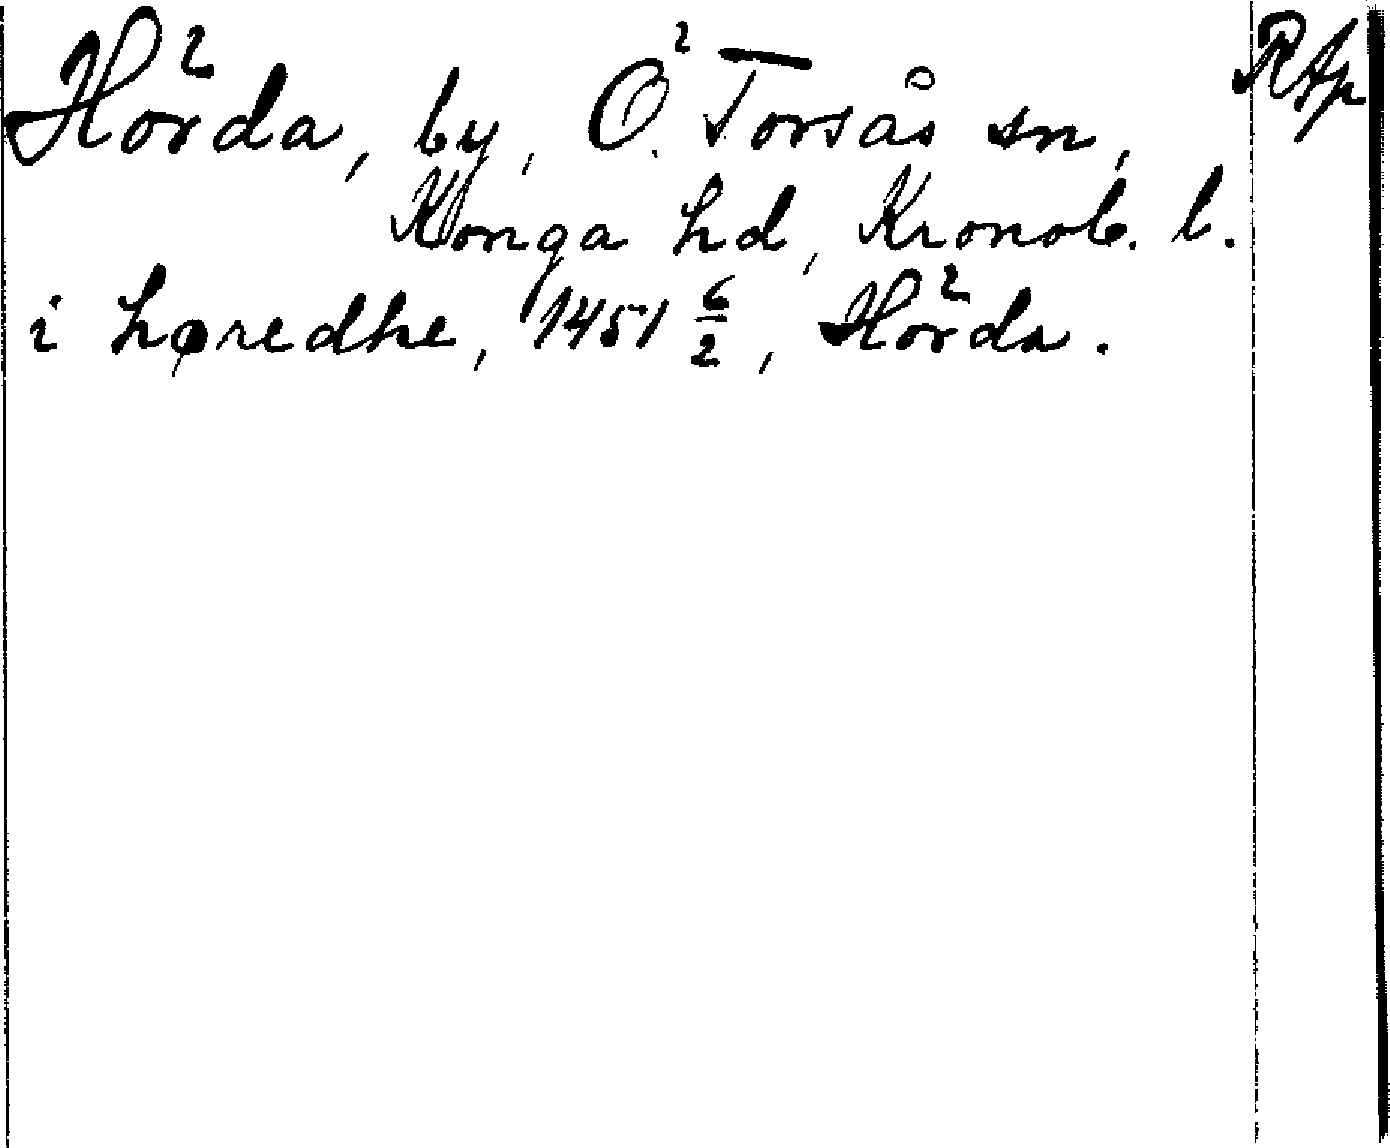 Hörda, by, Ö. Torsås sn, RAp
Konga hd, Kronob. l.
i høredhe, 1451 6/2, Hörda.